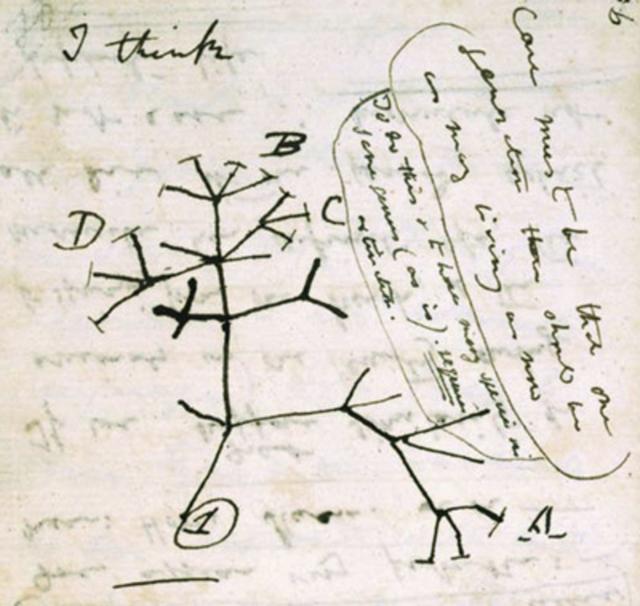 I think
Case must be that one
generation then should be
as many living as now
To do this & to have many species in
same genus (as is). requires
extinction.
B
C
D
A
1
36